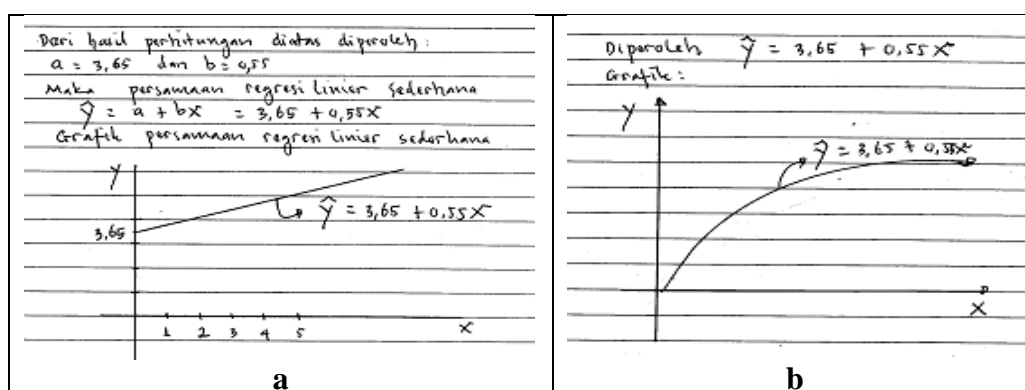 Dari hasil perhitungan diatas diperoleh :
a = 3,65 dan b = 0,55
Maka persamaan regresi linier sederhana
Ŷ = a + bx = 3,65 + 0,55x
Grafik persamaan regresi linier sederhana
Y
Ŷ = 3,65 + 0,55x
3,65
1 2 3 4 5 x
a
Diperoleh Ŷ = 3,65 + 0,55x
Grafik :
Y
Ŷ = 3,65 + 0,55x
X
b